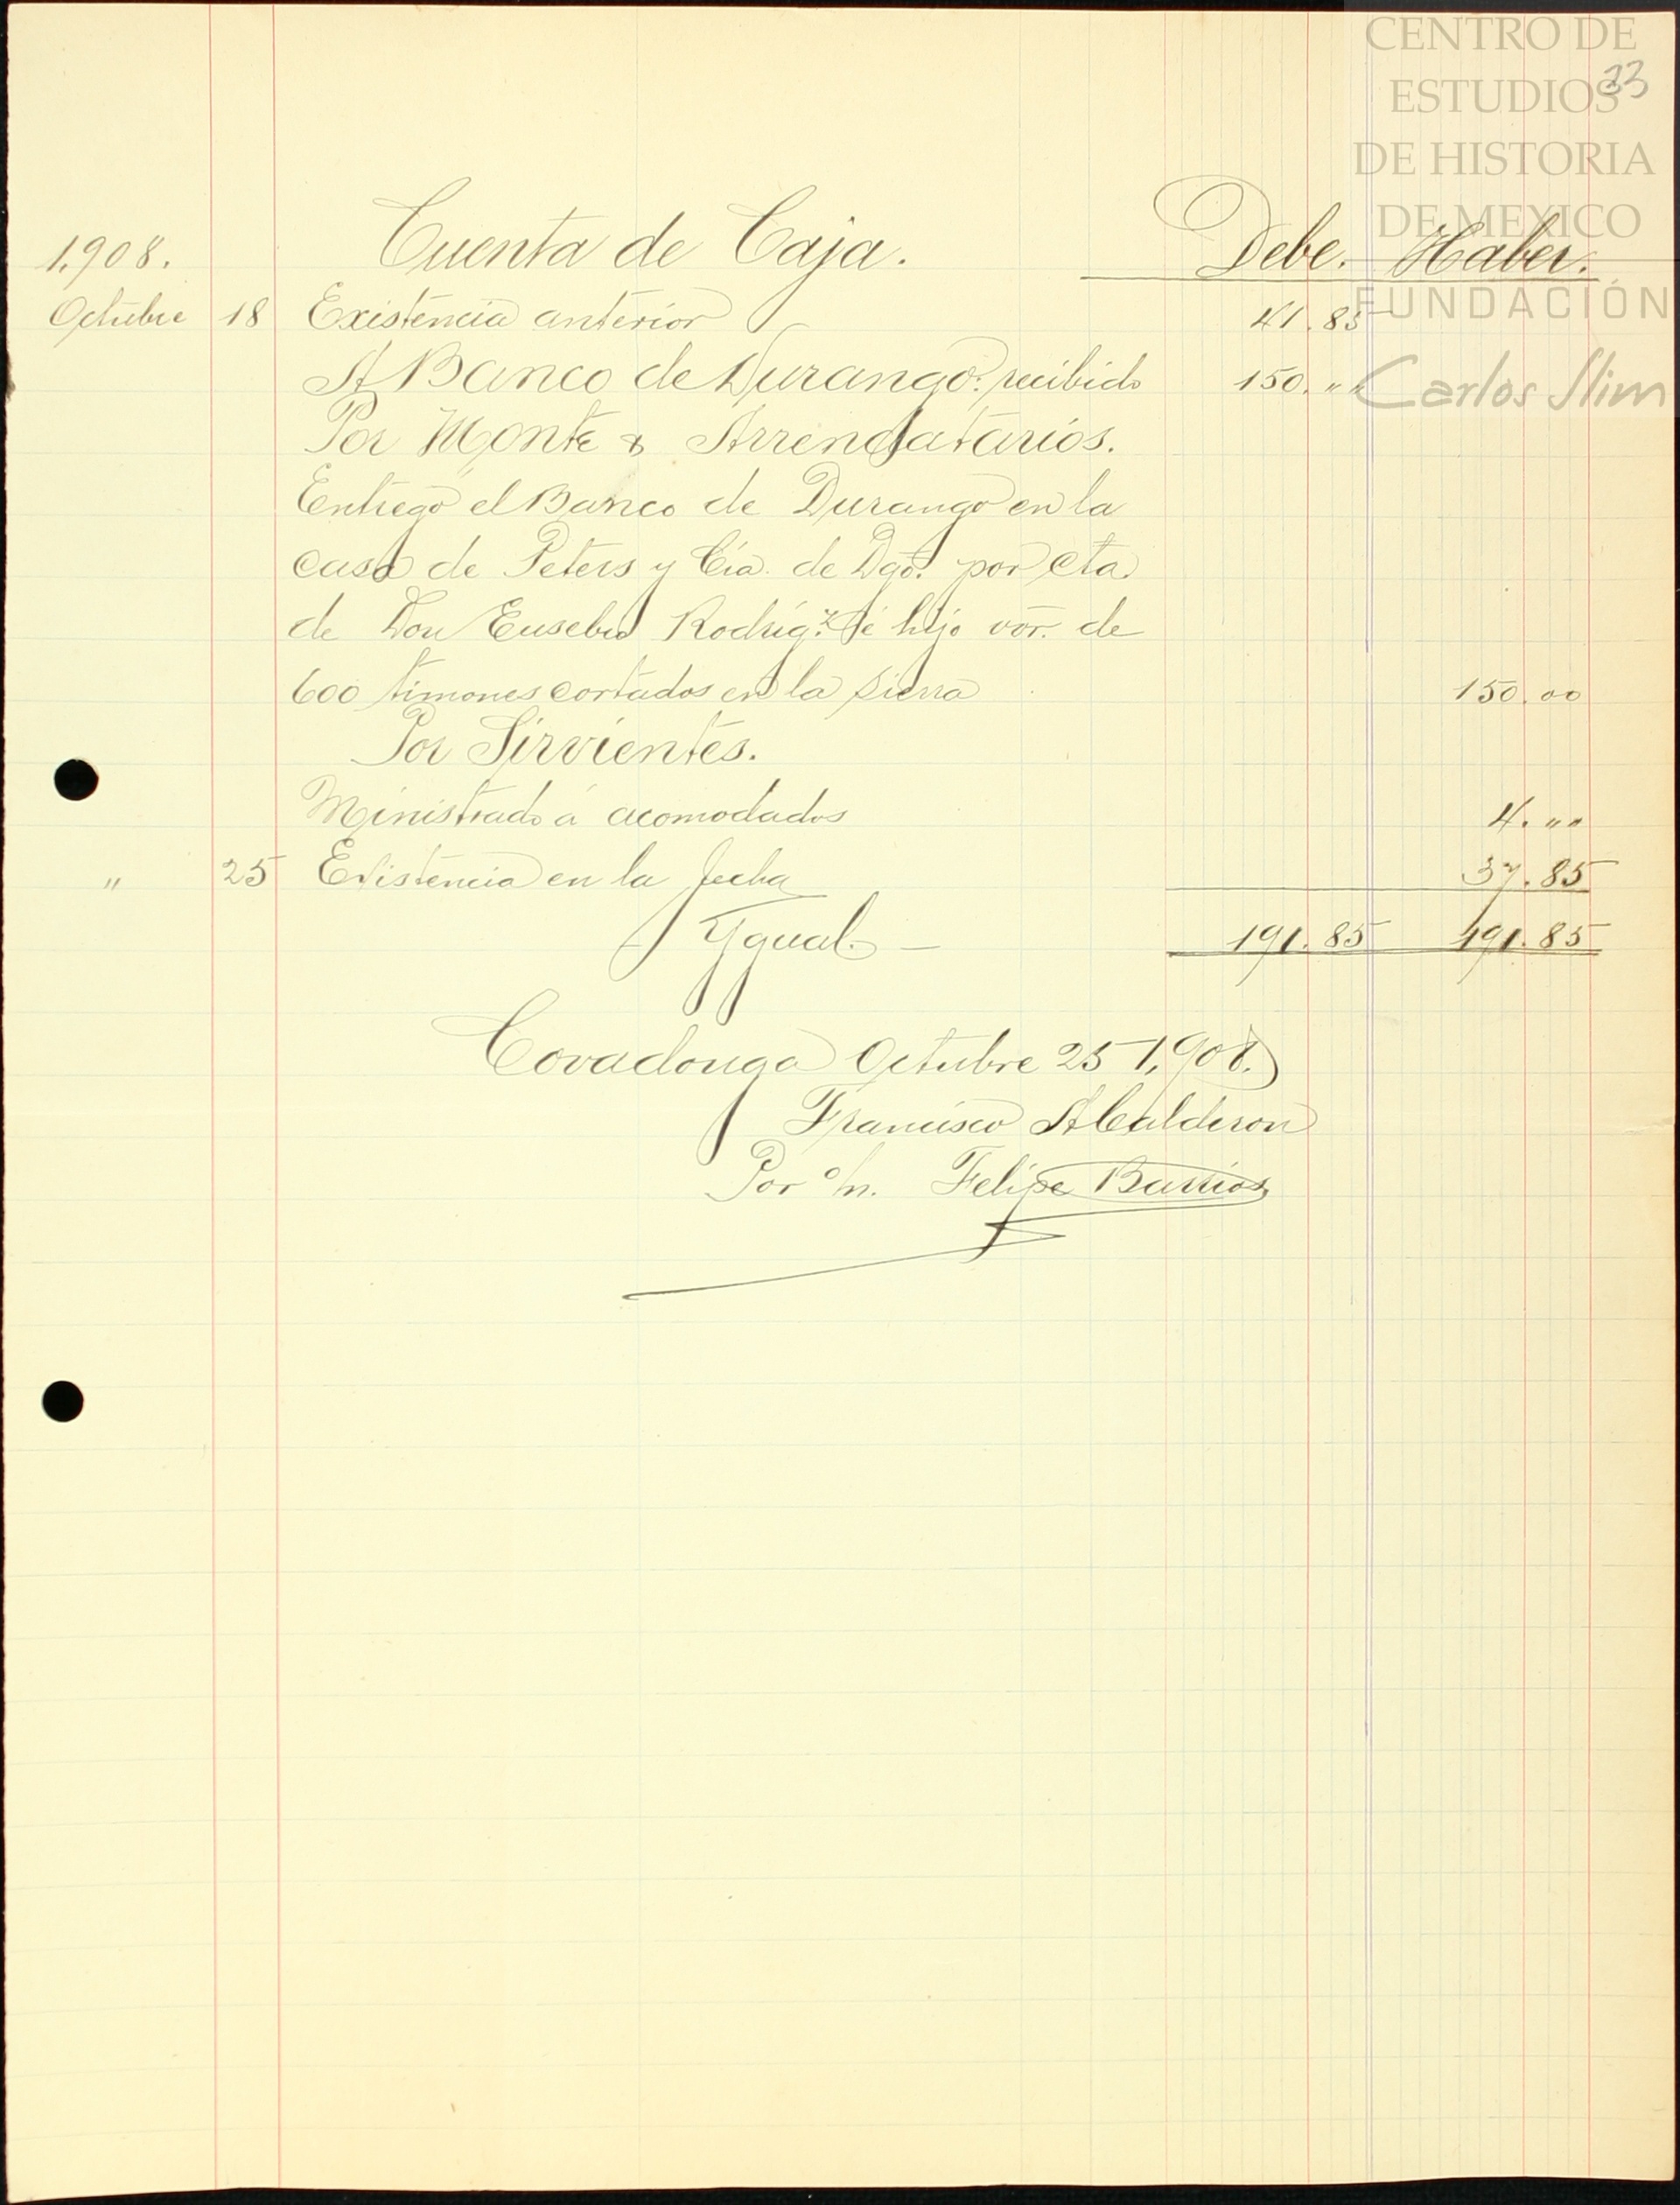 CENTRO DE
ESTUDIOS
33
DE HISTORIA
DE MEXICO
FUNDACIÓN
Carlos Slim
1,908. Cuenta de Caja. Debe. Haber.
Octubre 18 Existencia anterior 41.85
A Banco de Durango: recibido 150. " "
Por Monte & Arrendatarios.
Entregó el Banco de Durango en la
casa de Peters y Cía. de Dgo. por cta.
de Don Eusebio Rodrígz. é hijo vor. de
600 timones cortados en la sierra 150.00
Por Sirvientes.
Ministrado á acomodados 4. " "
" 25 Existencia en la fecha 37.85
Ygual.— 191.85 191.85
Covadonga Octubre 25 1,908.
Francisco A Calderon
Por o/n. Felipe Barrios